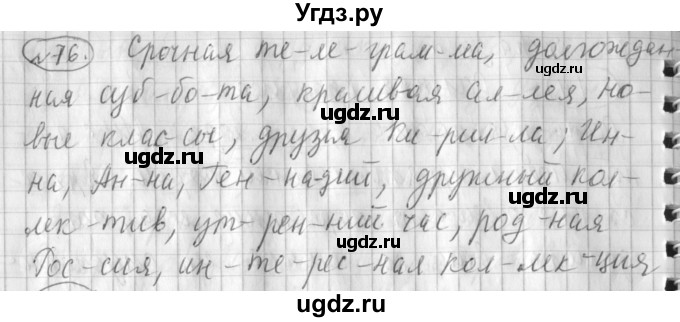 Угдз.ру
№76. Срочная те-ле-грам-ма, долгождан-
ugdz.ru ugdz.ru
ная суб-бо-та, красивая ал-лея, но-
вые клас-сы, друзья Ки-рил-ла, Ин-
ugdz.ru ugdz.ru
на, Ан-на, Ген-на-дий, дружный кол-
лек-тив, ут-рен-ний час, род-ная
ugdz.ru ugdz.ru
Рос-сия, ин-те-рес-ная кол-лек-ция
ugdz.ru